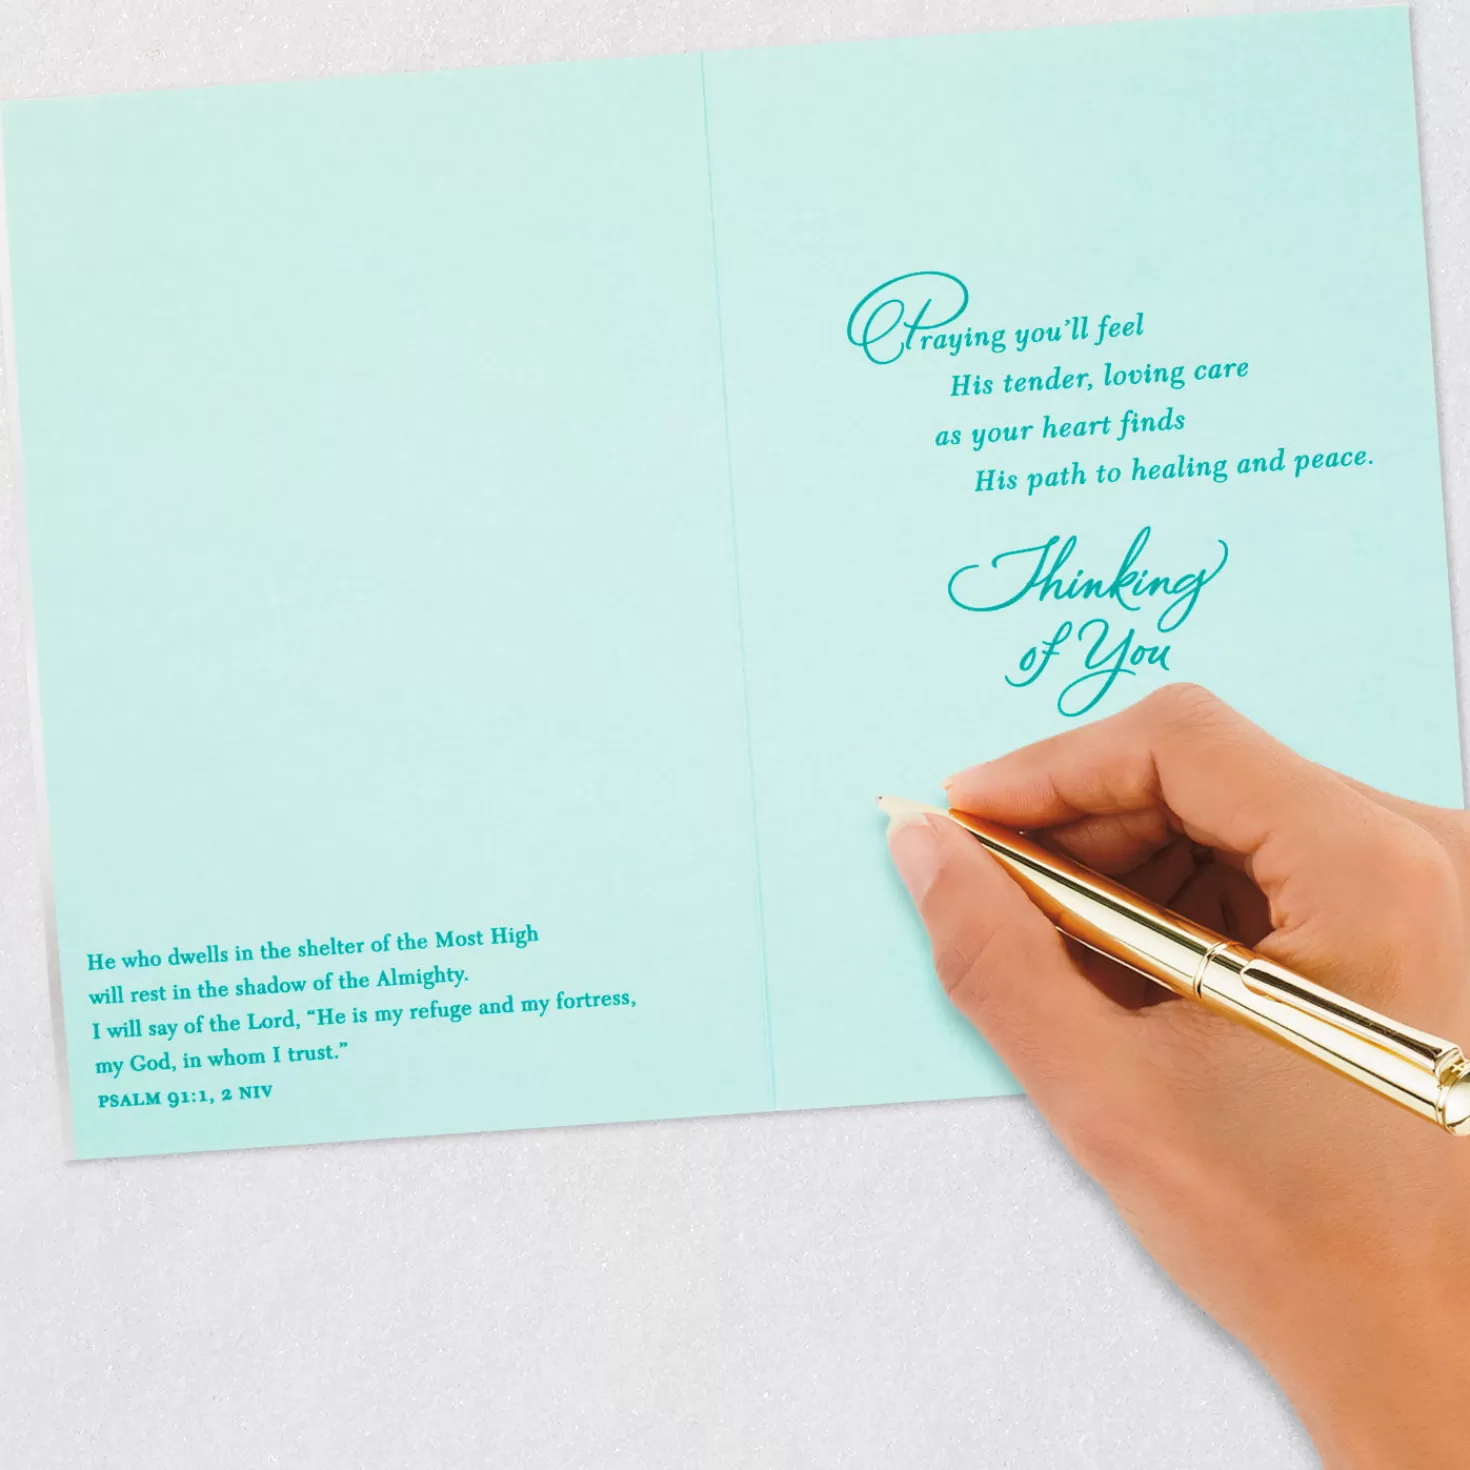 He who dwells in the shelter of the Most High
will rest in the shadow of the Almighty.
I will say of the Lord, “He is my refuge and my fortress,
my God, in whom I trust.”
PSALM 91:1, 2 NIV
Praying you’ll feel
His tender, loving care
as your heart finds
His path to healing and peace.
Thinking
of You